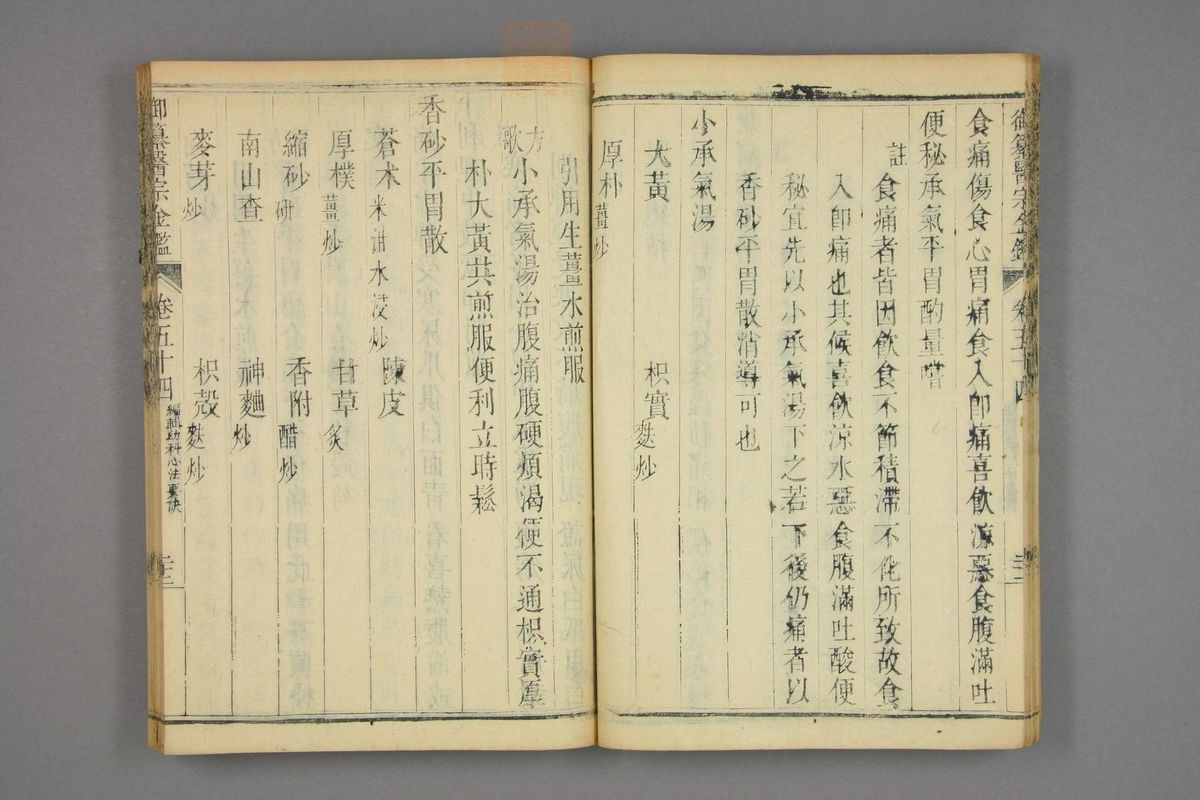 御纂醫宗金鑑 卷五十四 二三
食痛傷食心胃痛食入卽痛喜飲涼惡食腹滿吐
便秘承氣平胃酌量嘗
註 食痛者皆因飲食不節積滯不化所致故食
入卽痛也其候喜飲涼水惡食腹滿吐酸便
秘宜先以小承氣湯下之若下後仍痛者以
香砂平胃散消導可也
小承氣湯
大黃 枳實麩炒
厚朴薑炒
引用生薑水煎服
方歌 小承氣湯治腹痛腹硬煩渴便不通枳實厚
朴大黃共煎服便利立時鬆
香砂平胃散
蒼术米泔水浸炒 陳皮
厚樸薑炒 甘草炙
縮砂研 香附醋炒
南山查 神麯炒
麥芽炒 枳殼麩炒
御纂醫宗金鑑 卷五十四 編輯幼科心法要訣